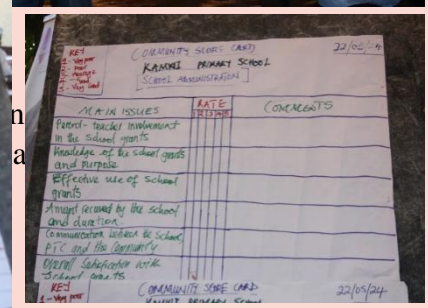 KEY
1 - Very poor
COMMUNITY SCORE CARD
22/05/24
KAMWI PRIMARY SCHOOL
SCHOOL ADMINISTRATION
MAIN ISSUES
RATE
COMMENTS
1 2 3 4 5
Parent-teacher involvement
in the school grants
Knowledge of the school grants
and purpose
Effective use of school
grants
Amount received by the school
and duration.
Communication between the School,
PTC and the Community
Overall Satisfaction with
School grants
KEY
1 - Very poor
COMMUNITY SCORE CARD
22/05/24
PRIMARY SCHOOL